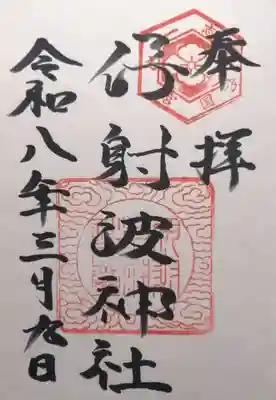 奉拝
伊射波神社
令和八年三月九日